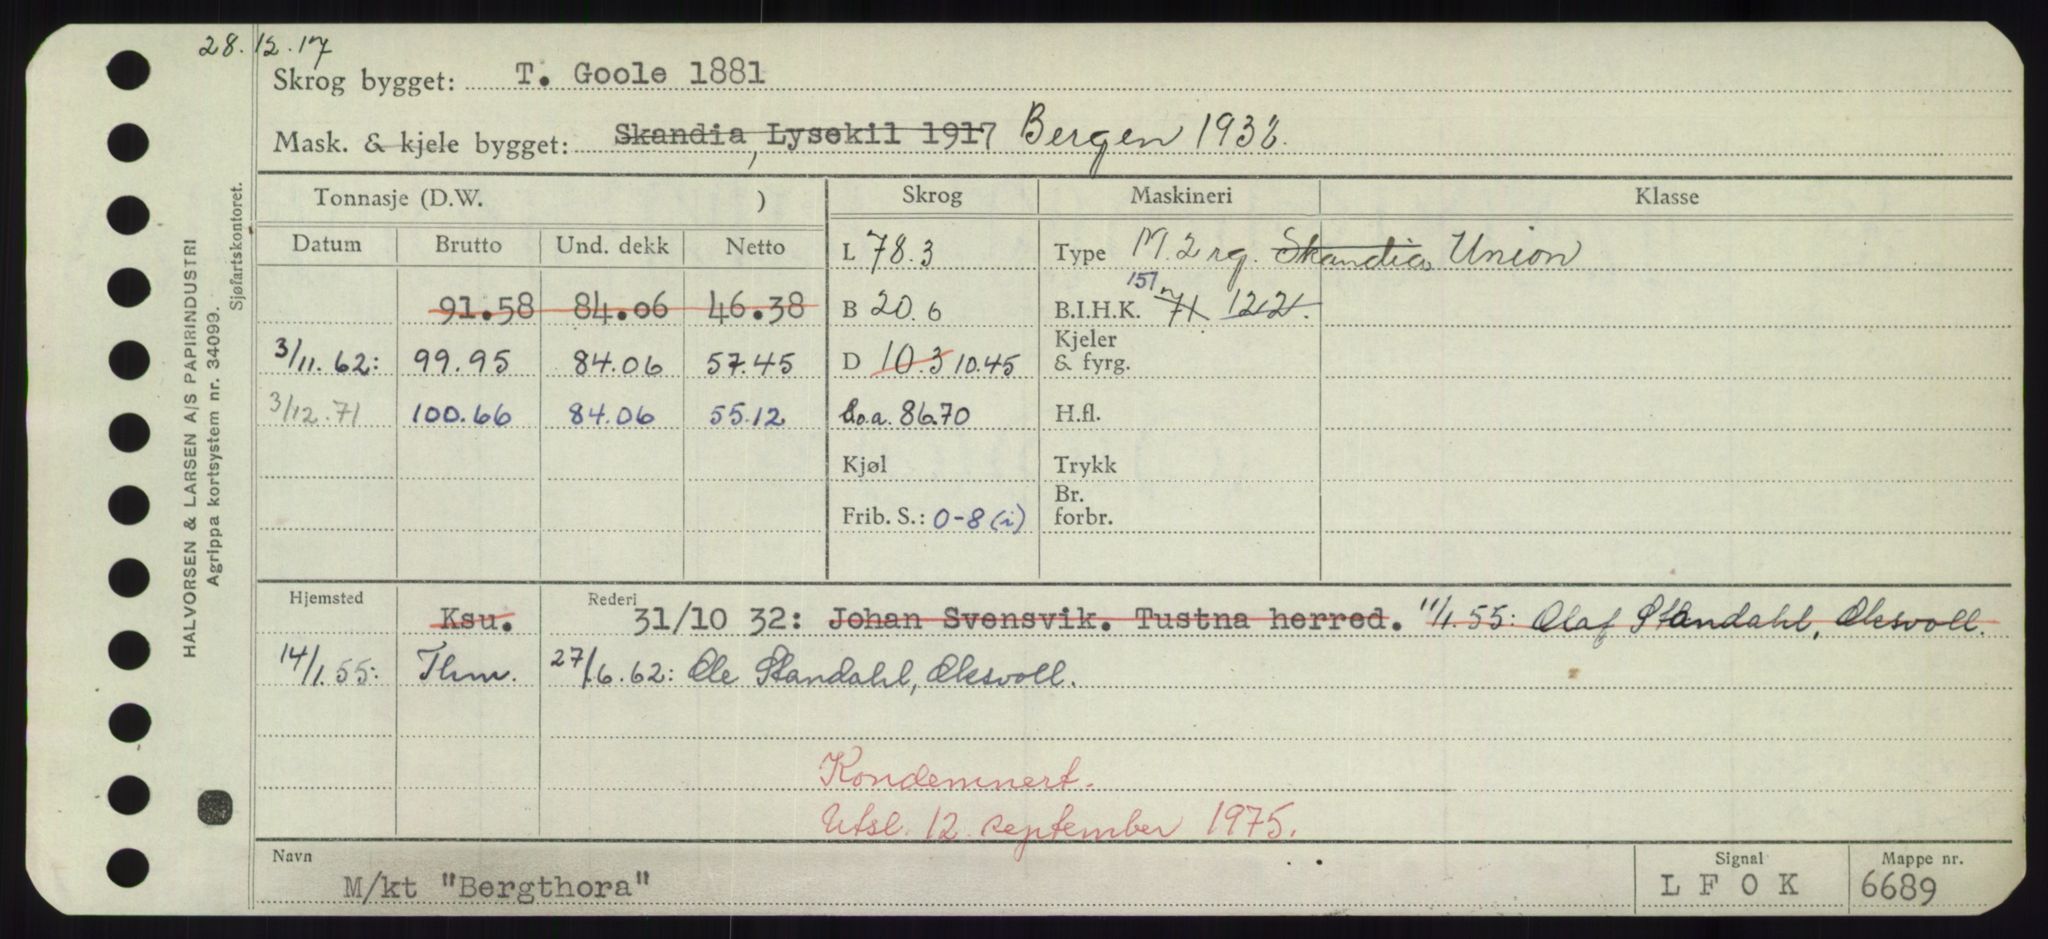 28.12.17
Skrog bygget: T. Goole 1881
Mask. & kjele bygget: Skandia, Lysekil 1917 Bergen 1938.
Tonnasje (D.W. ) Skrog Maskineri Klasse
Datum Brutto Und. dekk Netto L 78.3 Type M. 2 rg. Skandia Union
151 n
91.58 84.06 46.38 B 20.6 B.I.H.K. 71 122.
3/11.62: 99.95 84.06 57.45 D 10.3 10.45 Kjeler & fyrg.
3/12.71 100.66 84.06 55.12 Lo.a. 86.70 H.fl.
Kjøl Trykk
Frib. S.: 0-8 (i) Br. forbr.
Hjemsted Rederi
Ksu. 31/10 32: Johan Svensvik. Tustna herred. 11/1.55: Olaf Standahl, Oksvoll.
14/1.55: Thm. 27/6.62: Ole Standahl, Oksvoll.
Kondemnert.
Utsl. 12. september 1975.
Navn Signal Mappe nr.
M/kt "Bergthora" L F O K 6689
HALVORSEN & LARSEN A/S PAPIRINDUSTRI
Agrippa kortsystem nr. 34099.
Sjøfartskontoret.